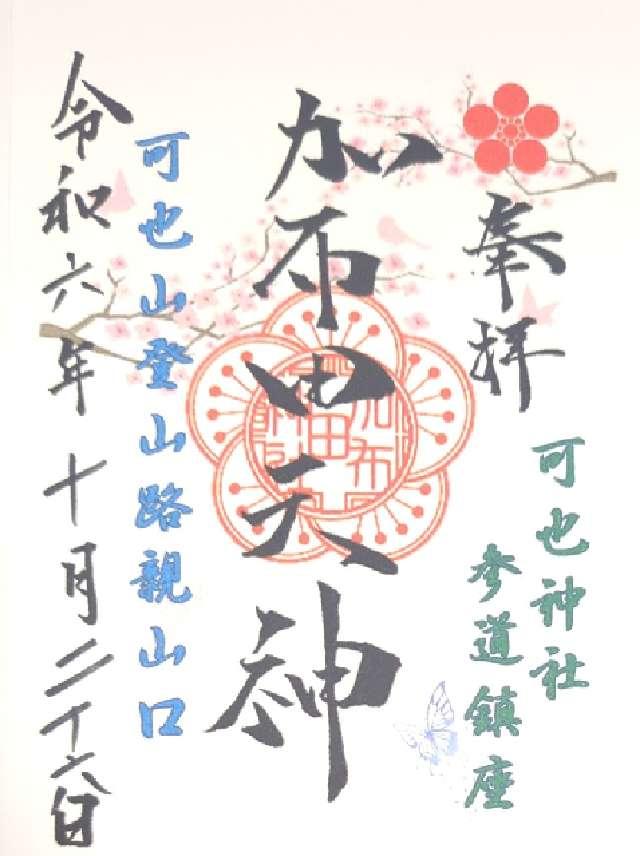 奉拝
可也神社
参道鎮座
加布田天神
可也山登山路親山口
令和六年十月二十六日